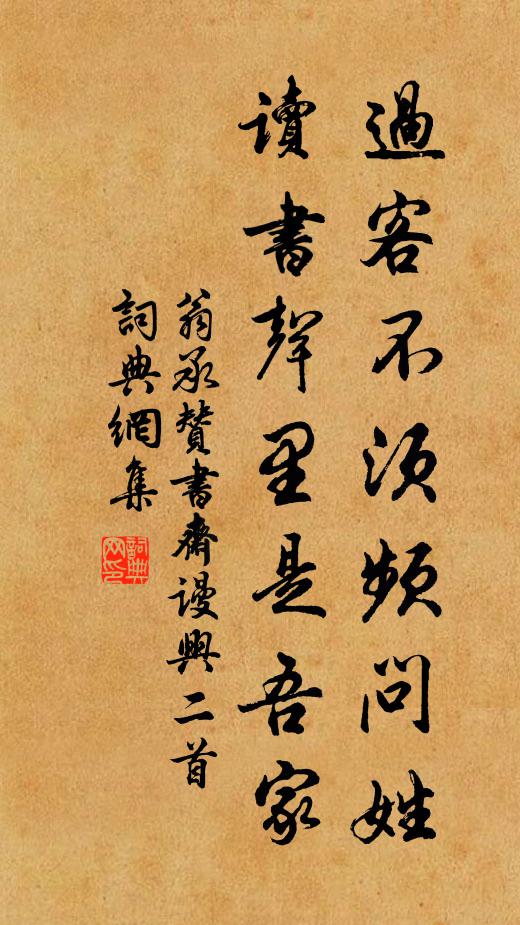 過客不須頻問姓
讀書聲里是吾家
翁承贊書齋謾興二首
詞典網集
詞典网印